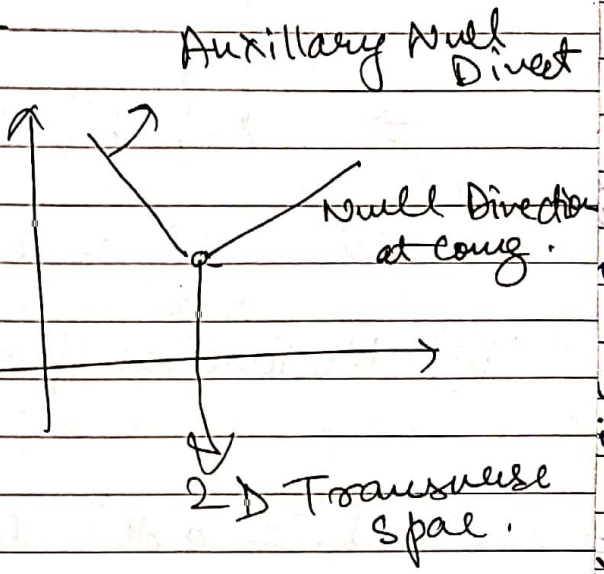 Auxillary Null
Direct
Null Direction
at cong.
2D Transverse
spac.